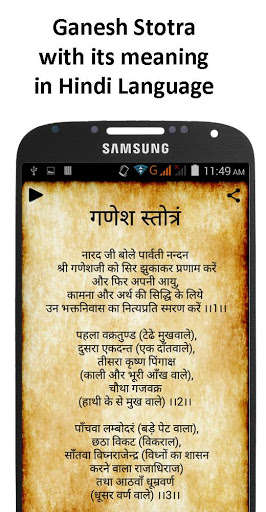 Ganesh Stotra
with its meaning
in Hindi Language
SAMSUNG
G
11:49 AM
गणेश स्तोत्रं
नारद जी बोले पार्वती नन्दन
श्री गणेशजी को सिर झुकाकर प्रणाम करें
और फिर अपनी आयु,
कामना और अर्थ की सिद्धि के लिये
उन भक्तनिवास का नित्यप्रति स्मरण करें ।।1।।
पहला वक्रतुण्ड (टेढे मुखवाले),
दुसरा एकदन्त (एक दाँतवाले),
तीसरा कृष्ण पिंगाक्ष
(काली और भूरी आँख वाले),
चौथा गजवक्र
(हाथी के से मुख वाले) ।।2।।
पाँचवा लम्बोदरं (बड़े पेट वाला),
छठा विकट (विकराल),
साँतवा विघ्नराजेन्द्र (विघ्नों का शासन
करने वाला राजाधिराज)
तथा आठवाँ धूम्रवर्ण
(धूसर वर्ण वाले) ।।3।।